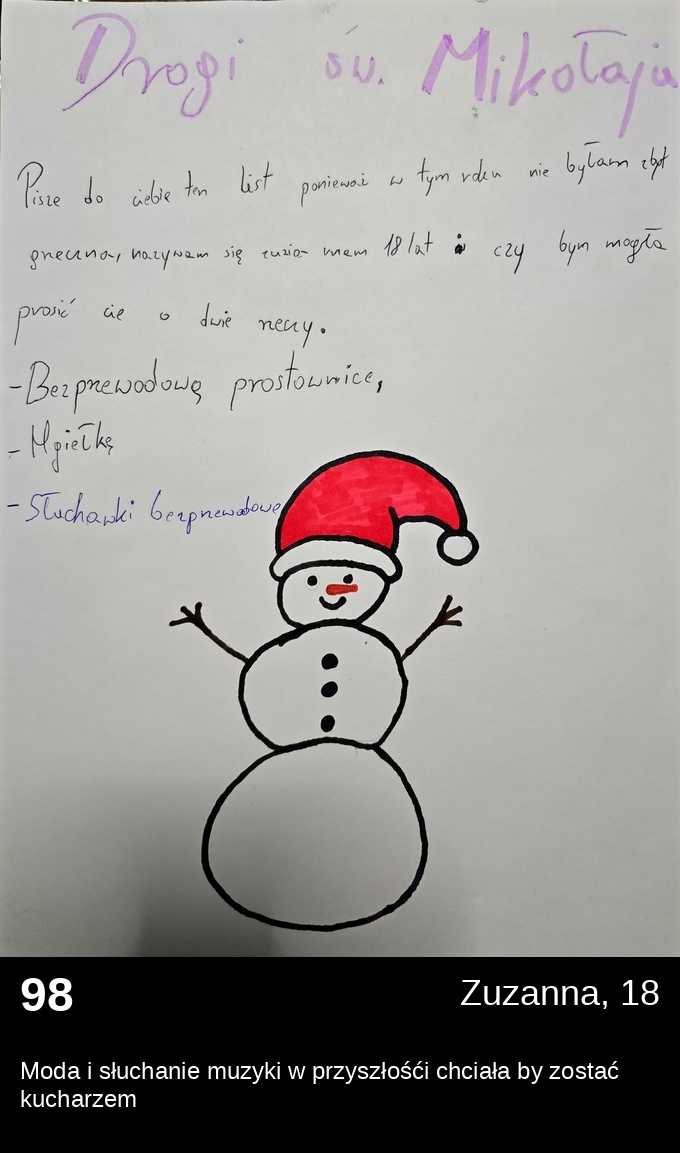 Drogi św. Mikołaju
Pisze do ciebie ten list ponieważ w tym roku nie byłam zbyt
grzeczna, nazywam się zuzia mam 18 lat i czy bym mogła
prosić cie o dwie rzeczy.
- Bezprzewodową prostownice,
- Mgiełkę
- Słuchawki bezprzewodowe
98
Zuzanna, 18
Moda i słuchanie muzyki w przyszłośći chciała by zostać
kucharzem